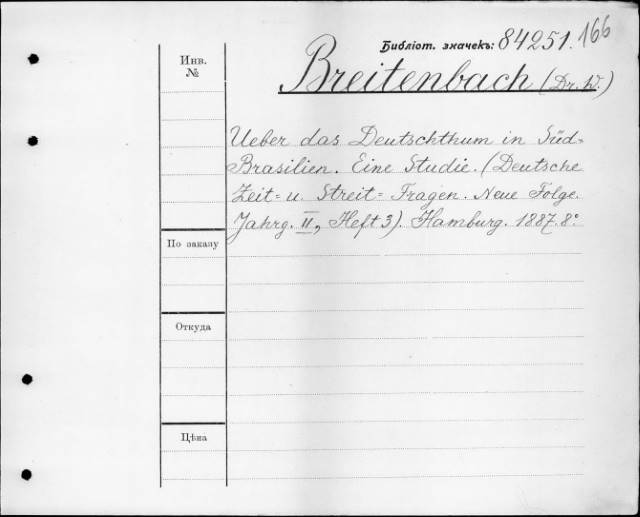 Библіот. значекъ: 84251. 166
Инв.
№
Breitenbach (Dr. W.)
Ueber das Deutschthum in Süd=
Brasilien. Eine Studie. (Deutsche
Zeit= u. Streit= Fragen. Neue Folge.
Jahrg. II, Heft 3). Hamburg. 1887. 8°.
По заказу
Откуда
Цѣна